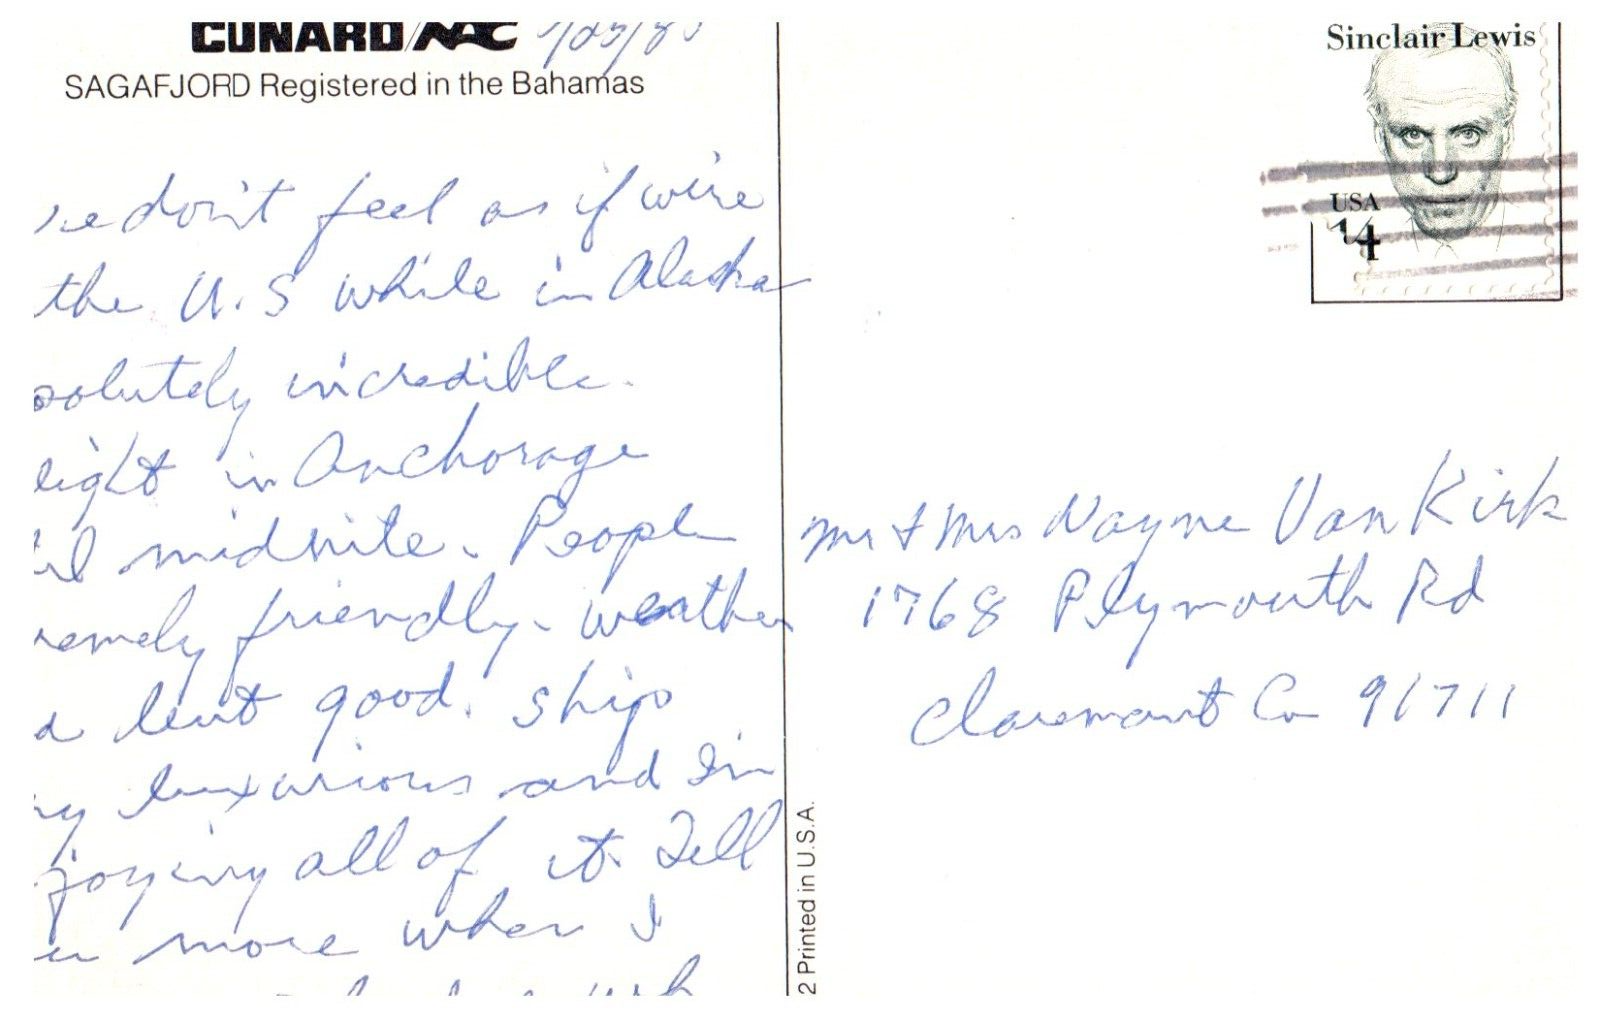 CUNARD/NAC
SAGAFJORD Registered in the Bahamas
don't feel as if we're
the U.S while in Alaska
solutely incredible.
light in Anchorage
til midnite. People
remely friendly. weather
good. Ship
ry luxurious and I'm
joying all of it. Tell
u more when I
Sinclair Lewis
USA
14
Mr & Mrs Wayne Van Kirk
1768 Plymouth Rd
Claremont Ca 91711
2 Printed in U.S.A.